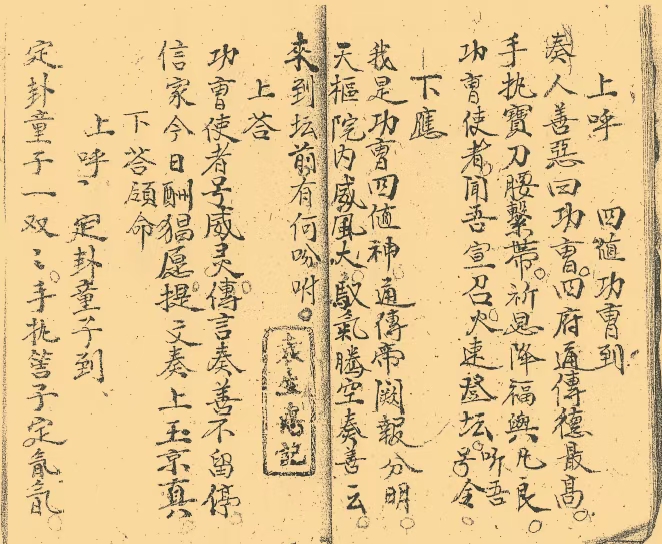 上呼 四值功曹到
奏人善惡曰功曹。四府通傳德最高。
手执寶刀腰繫帶。祈恩降福與凡良。
功曹使者聞吾宣召火速登坛。听吾号令。
下應
我是功曹四值神。通傳帝闕報分明。
天樞院內威風大。馭氣騰空奏善云。
來到坛前有何吩咐。
上答
功曹使者号威灵。傳言奏善不留停。
信家今日酬猖愿。提文奏上玉京真。
下答領命
上呼 定卦童子到
定卦童子一双々。手执筶子定
記